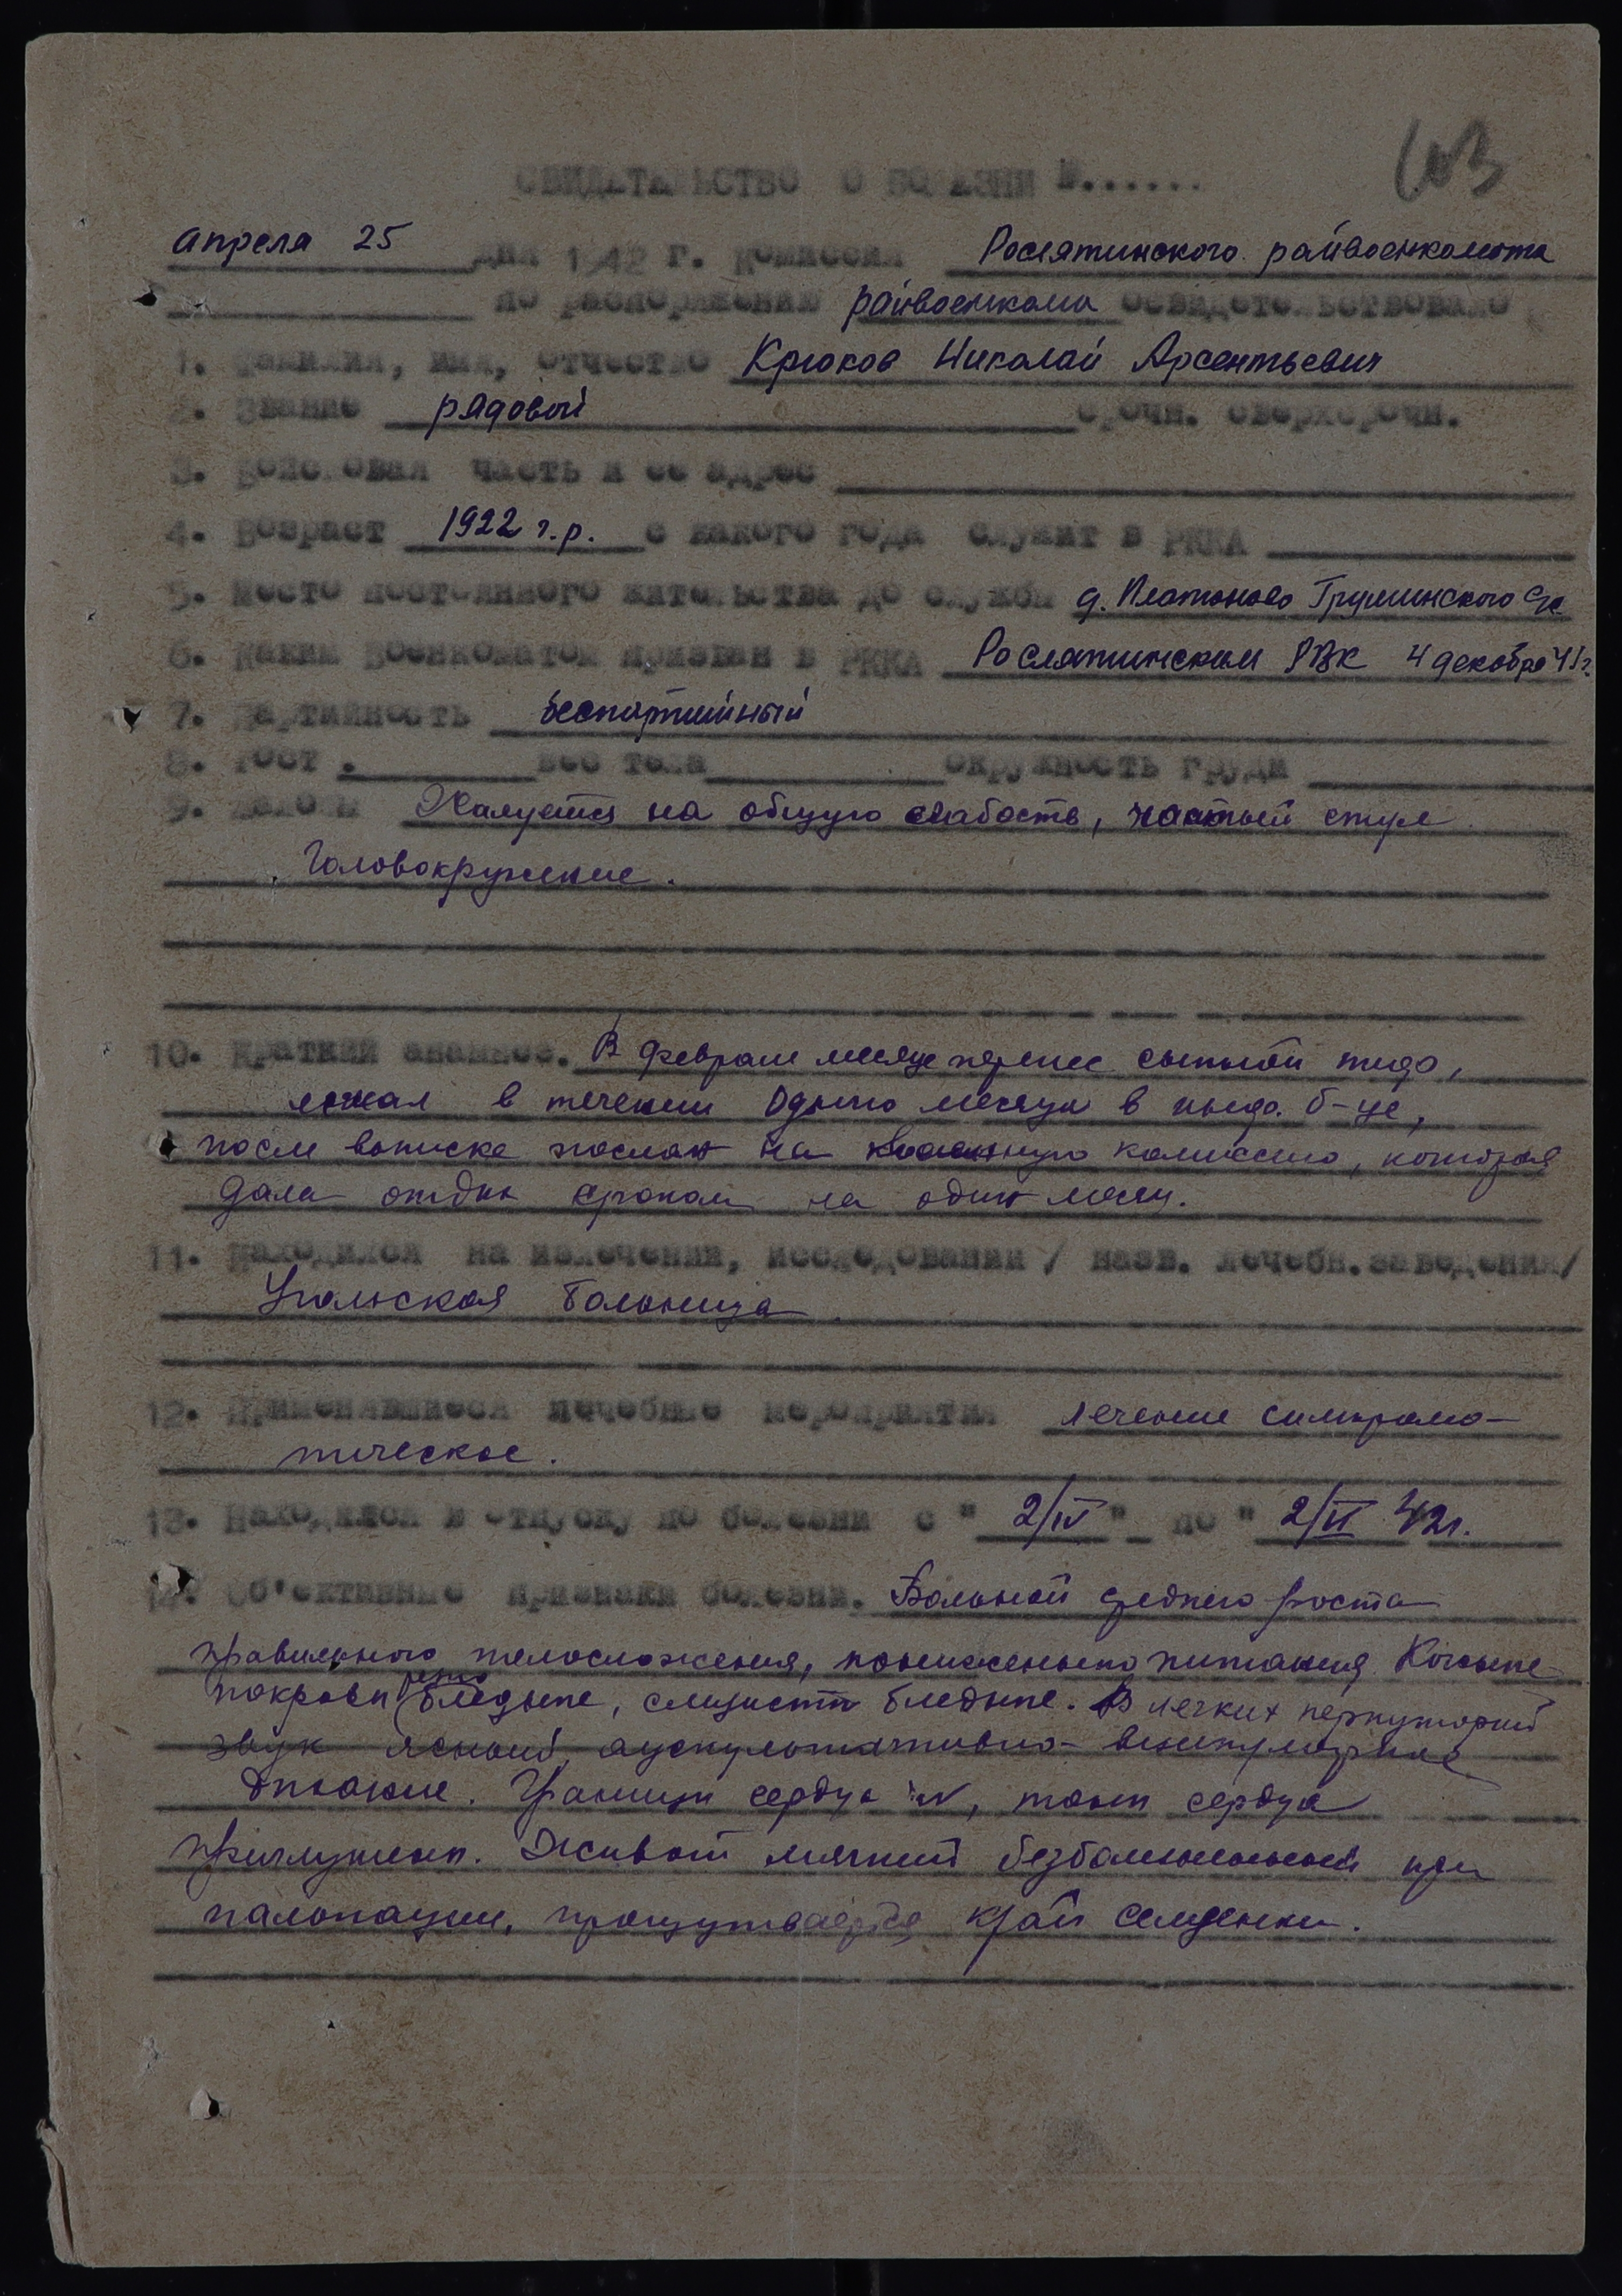 103
СВИДЕТЕЛЬСТВО О БОЛЕЗНИ №......
апреля 25 дня 1942 г. Комиссия Рослятинского райвоенкомата
по распоряжению райвоенкома освидетельствовано
1. Фамилия, имя, отчество Крюков Николай Арсентьевич
2. Звание рядовой срочн. сверхсрочн.
3. Войсковая часть и ее адрес
4. Возраст 1922 г.р. с какого года служит в РККА
5. Место постоянного жительства до службы д. Платоново
6. Каким военкоматом призван в РККА Рослятинским РВК 4 декабря 41 г.
7. Партийность беспартийный
8. Рост . вес тела окружность груди
9. Жалобы Жалуется на общую слабость, частый стул
Головокружение.
10. Краткий анамнез. В феврале месяце перенес сыпной тиф,
лежал в течении одного месяца в инф. б-це,
после выписке послан на военную комиссию, которая
дала отдых сроком на один месяц.
11. Находился на излечении, исследовании / назв. лечебн. заведения/
Угольская больница
12. Применявшиеся лечебные мероприятия лечение симптома-
тическое.
13. Находился в отпуску по болезни с " 2/IV " по " 42г.
14. Об'ективные признаки болезни. Больной среднего роста
правильного телосложения, пониженного питания. Кожные
покровы бледные, слизисты бледные. В легких перкуторий
звук ясный, аускультативно- везикулярное
дыхание. Границы сердца N, тоны сердца
приглушены. Живот мягкий безболезненный при
палопации, прощупывается край селезенки.